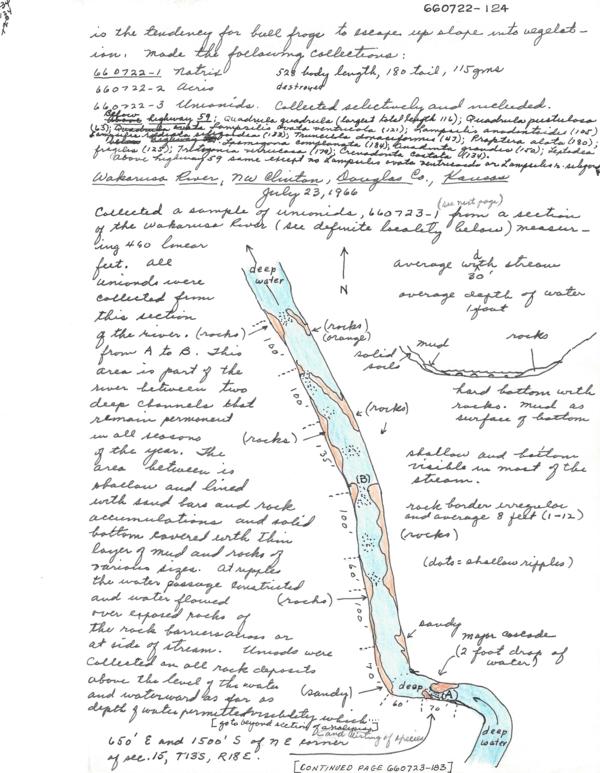 660722-124
is the tendency for bull frogs to escape up slope into vegetat-
ion. Made the following collections:
660722-1 Natrix 528 body length, 180 tail, 115 gms
660722-2 Acris destroyed
660722-3 Unionids. Collected selectively and included.
Below
Above highway 59; Quadrula quadrula (largest total length 116); Quadrula pustulosa
(63); Lampsilis ovata ventricosa (121); Lampsilis anodontoides (105)
(133); Truncilla donaciformis (47); Proptera alata (130);
Lasmigona complanata (184); Anodonta grandis (152); Leptodea
fragilis (125); Tritogonia verrucosa (170); Arcuodonta costata (134).
(above highway 59 same except no Lampsilis ovata ventricosa or Lampsilis r.
Wakarusa River, NW Clinton, Douglas Co., Kansas
July 23, 1966
(see next page)
Collected a sample of unionids, 660723-1 from a section
of the Wakarusa River (see definite locality below) measur-
ing 460 linear
feet. All
unionids were
collected from
this section
of the river.
from A to B. This
area is part of the
river between two
deep channels that
remain permanent
in all seasons
of the year. The
area between is
shallow and lined
with sand bars and rock
accumulations and solid
bottom covered with thin
layer of mud and rocks of
various sizes. At ripples
the water passage constricted
and water flowed
over exposed rocks of
the rock barriers across or
at side of stream. Unionids were
collected on all rock deposits
above the level of the water
and waterward as far as
depth of water permitted visibility which...
[go to beyond section of analysis
and listing of species]
650' E and 1500' S of NE corner
of sec. 15, T13S, R18E.
[CONTINUED PAGE 660723-183]
deep
water
N
(rocks)
(rocks)
(orange)
100'
100'
(rocks)
(rocks)
135'
(B)
100'
60'
(rocks)
100'
70'
sandy
major cascade
(2 foot drop of
water)
(sandy)
deep
(A)
60'
70'
deep
water
average width stream
30'
average depth of water
1 foot
mud
rocks
solid
soils
hard bottom with
rocks. Mud as
surface of bottom
shallow and bottom
visible in most of the
stream.
rock border irregular
and average 8 feet (1-12)
(rocks)
(dots = shallow ripples)